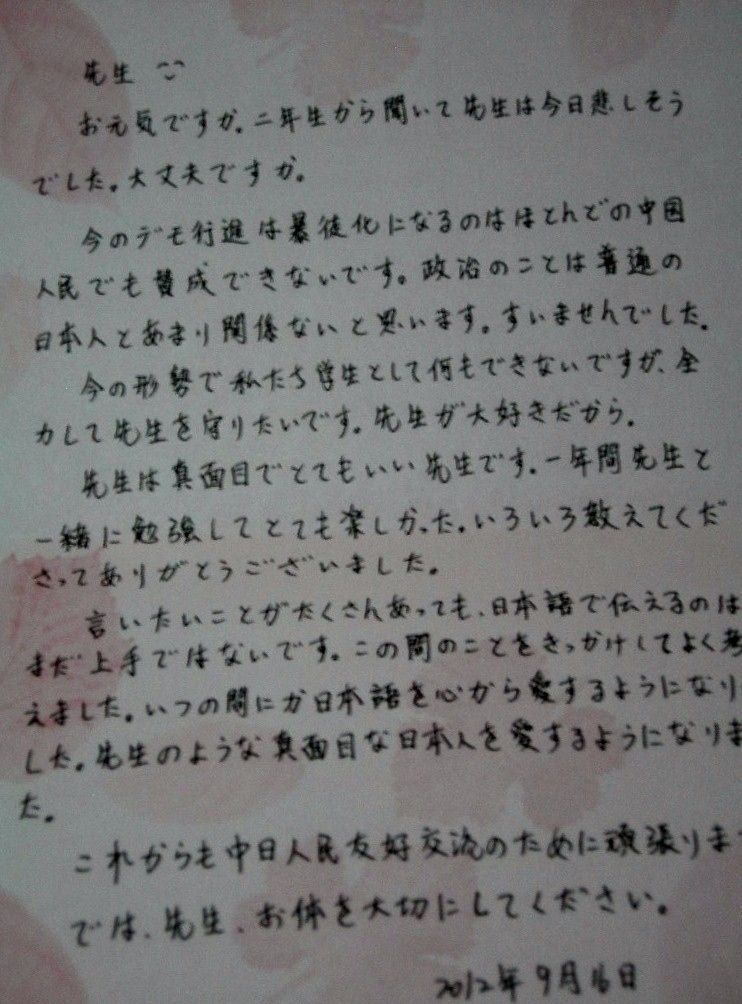 先生
お元気ですか。二年生から聞いて先生は今日悲しそう
でした。大丈夫ですか。
今のデモ行進は暴徒化になるのはほとんどの中国
人民でも賛成できないです。政治のことは普通の
日本人とあまり関係ないと思います。すいませんでした。
今の形勢で私たち学生として何もできないですが、全
力して先生を守りたいです。先生が大好きだから。
先生は真面目でとてもいい先生です。一年間先生と
一緒に勉強してとても楽しかった。いろいろ教えてくだ
さってありがとうございました。
言いたいことがたくさんあっても、日本語で伝えるのは
まだ上手ではないです。この間のことをきっかけしてよく考
えました。いつの間にか日本語を心から愛するようになり
した。先生のような真面目な日本人を愛するようになりま
た。
これからも中日人民友好交流のために頑張りま
では、先生、お体を大切にしてください。
2012年9月16日